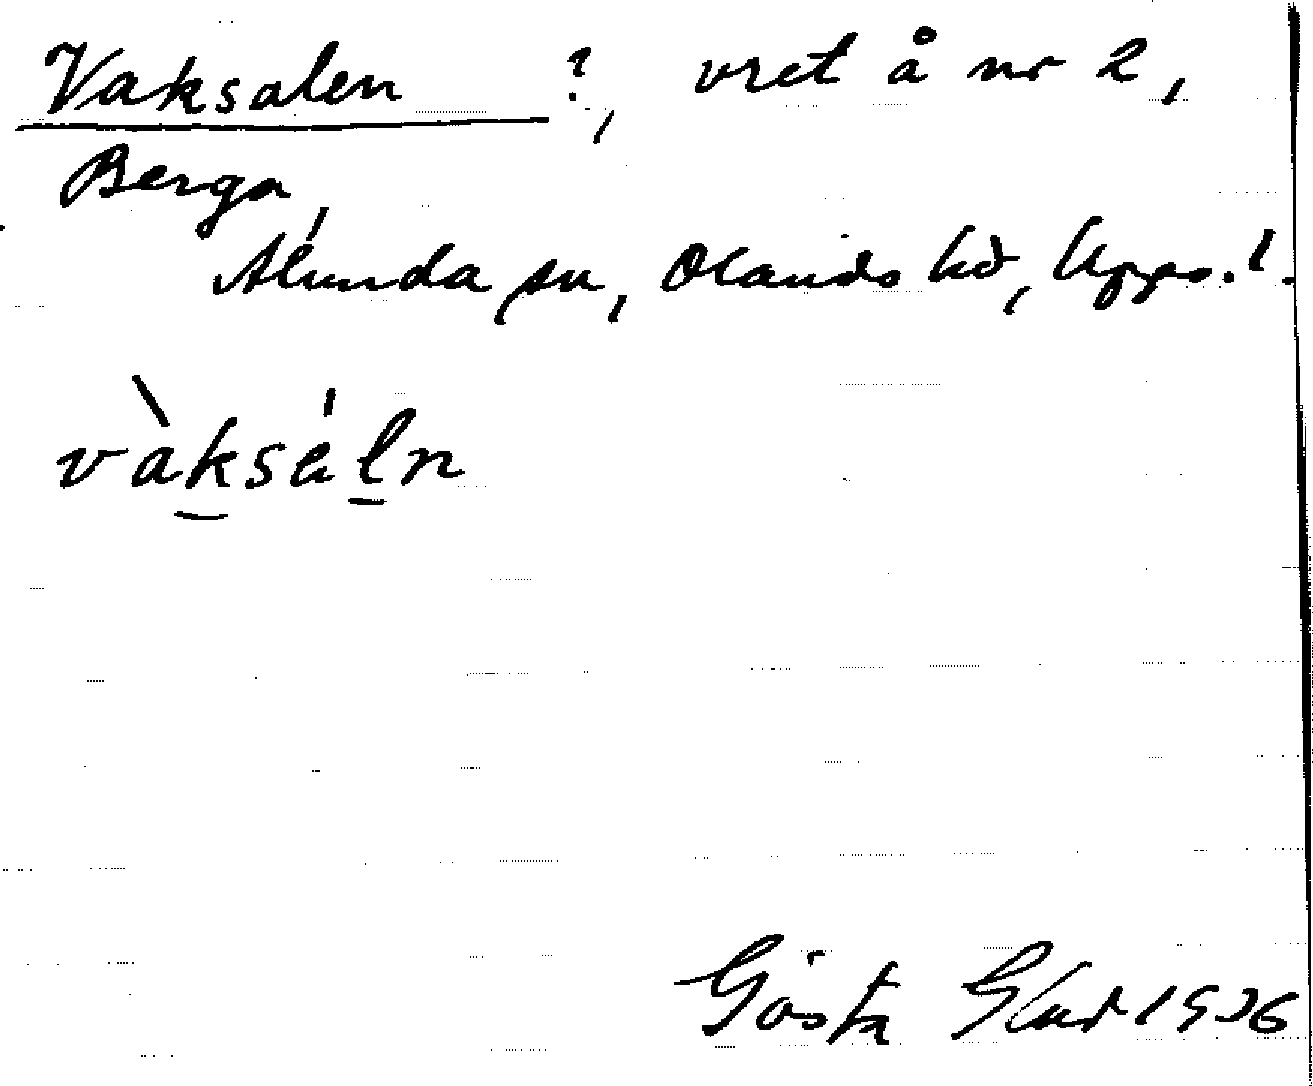 Vaksalen ?, vret å nr 2,
Berga,
Alunda sn, Olands hd, Upps. l.
vàksáln
Gösta 1936